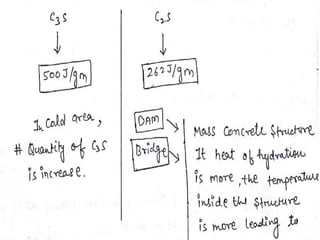 C3S
500J/gm
In Cold area,
# Quantity of C3S
is increase.
C2S
262J/gm
DAM
Bridge
Mass Concrete Structure
If heat of hydration
is more, the temperature
inside the structure
is more leading to